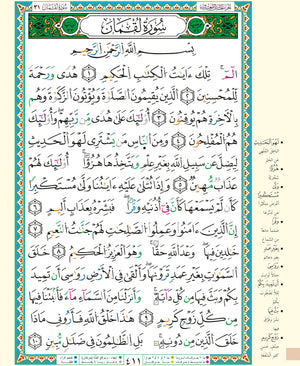 سُورَةُ لُقْمَان ٣١
سُورَةُ لُقْمَانَ
بِسْمِ ٱللَّهِ ٱلرَّحْمَٰنِ ٱلرَّحِيمِ
الٓمٓ ١ تِلْكَ ءَايَٰتُ ٱلْكِتَٰبِ ٱلْحَكِيمِ ٢ هُدًى وَرَحْمَةً
لِّلْمُحْسِنِينَ ٣ ٱلَّذِينَ يُقِيمُونَ ٱلصَّلَوٰةَ وَيُؤْتُونَ ٱلزَّكَوٰةَ وَهُم
بِٱلْءَاخِرَةِ هُمْ يُوقِنُونَ ٤ أُو۟لَٰٓئِكَ عَلَىٰ هُدًى مِّن رَّبِّهِمْ وَأُو۟لَٰٓئِكَ
هُمُ ٱلْمُفْلِحُونَ ٥ وَمِنَ ٱلنَّاسِ مَن يَشْتَرِى لَهْوَ ٱلْحَدِيثِ
لِيُضِلَّ عَن سَبِيلِ ٱللَّهِ بِغَيْرِ عِلْمٍ وَيَتَّخِذَهَا هُزُوًا أُو۟لَٰٓئِكَ لَهُمْ
عَذَابٌ مُّهِينٌ ٦ وَإِذَا تُتْلَىٰ عَلَيْهِ ءَايَٰتُنَا وَلَّىٰ مُسْتَكْبِرًا
كَأَن لَّمْ يَسْمَعْهَا كَأَنَّ فِىٓ أُذُنَيْهِ وَقْرًا فَبَشِّرْهُ بِعَذَابٍ أَلِيمٍ ٧
إِنَّ ٱلَّذِينَ ءَامَنُوا۟ وَعَمِلُوا۟ ٱلصَّٰلِحَٰتِ لَهُمْ جَنَّٰتُ ٱلنَّعِيمِ ٨
خَٰلِدِينَ فِيهَا وَعْدَ ٱللَّهِ حَقًّا وَهُوَ ٱلْعَزِيزُ ٱلْحَكِيمُ ٩ خَلَقَ
ٱلسَّمَٰوَٰتِ بِغَيْرِ عَمَدٍ تَرَوْنَهَا وَأَلْقَىٰ فِى ٱلْأَرْضِ رَوَٰسِىَ أَن تَمِيدَ
بِكُمْ وَبَثَّ فِيهَا مِن كُلِّ دَآبَّةٍ وَأَنزَلْنَا مِنَ ٱلسَّمَآءِ مَآءً فَأَنۢبَتْنَا فِيهَا
مِن كُلِّ زَوْجٍ كَرِيمٍ ١٠ هَٰذَا خَلْقُ ٱللَّهِ فَأَرُونِى مَاذَا
خَلَقَ ٱلَّذِينَ مِن دُونِهِۦ بَلِ ٱلظَّٰلِمُونَ فِى ضَلَٰلٍ مُّبِينٍ ١١
٤١١